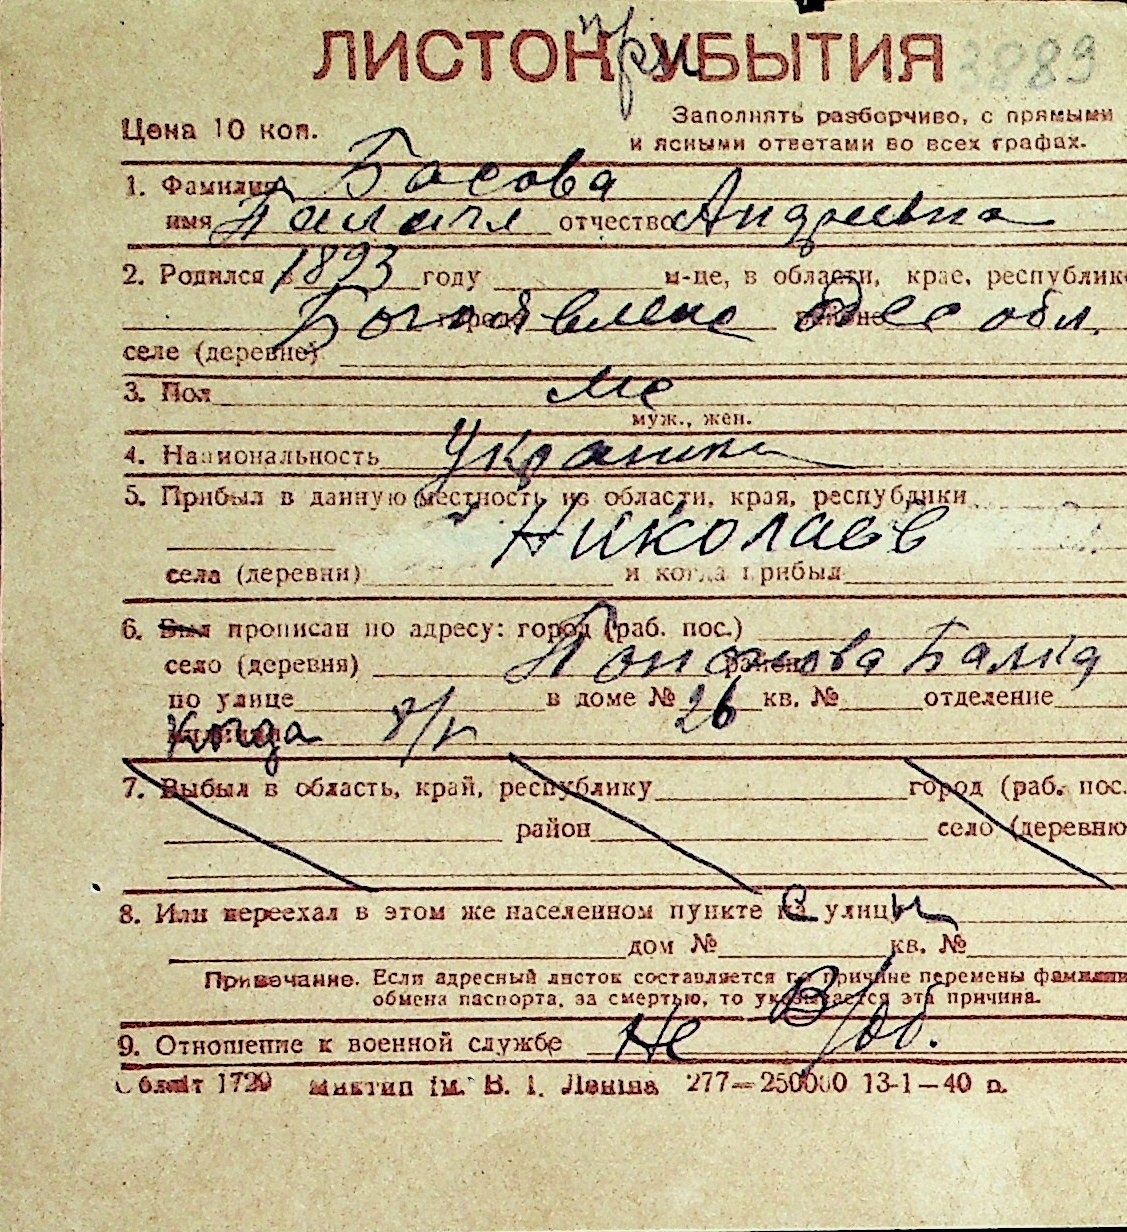 при
ЛИСТОК УБЫТИЯ 3889
Цена 10 коп.
Заполнять разборчиво, с прямыми
и ясными ответами во всех графах.
1. Фамилия Басова
имя отчество Андреевна
2. Родился в 1893 году м-це, в области, крае, республике
городе районе Одес обл.
селе (деревне)
3. Пол
муж., жен.
4. Национальность Украинка
5. Прибыл в данную местность из области, края, республики
Николаев
села (деревни) и когда прибыл
6. Был прописан по адресу: город (раб. пос.)
село (деревня) района Балка
по улице в доме № 26 кв. № отделение
Когда
7. Выбыл в область, край, республику город (раб. пос.
район село (деревню
8. Или переехал в этом же населенном пункте на улицу
дом № кв. №
Примечание. Если адресный листок составляется по причине перемены фамилии
обмена паспорта, за смертью, то указывается эта причина.
9. Отношение к военной службе Не В/об.
Облліт 1729 ім. В. І. Леніна 277—250000 13-1—40 р.